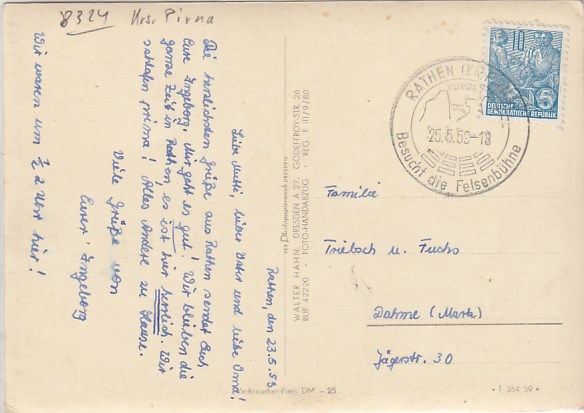 8324 Krs. Pirna
Rathen, den 23.5.59
Liebe Mutti, lieber Vater und liebe Oma!
Die herzlichsten Grüße aus Rathen sendet Euch
Eure Ingeborg. Mir geht es gut! Wir bleiben die
ganze Zeit in Rathen, es ist hier herrlich. Wir
schlafen prima! Alles Andere zu Hause.
Viele Grüße von
Eurer Ingeborg
Wir waren um ½ 2 Uhr hier!
WALTER HAHN, DRESDEN A 27, GODEFFROY-STR. 26
RUF 42220 · FOTO-HANDABZUG · REG. F III/9/60
Verbraucher-Preis DM -25
RATHEN
25.5.59-18
Besucht die Felsenbühne
10
5
DEUTSCHE
DEMOKRATISCHE REPUBLIK
Familie
Triebsch u. Fuchs
Dahme (Mark)
Jägerstr. 30
· I 354 59 ·